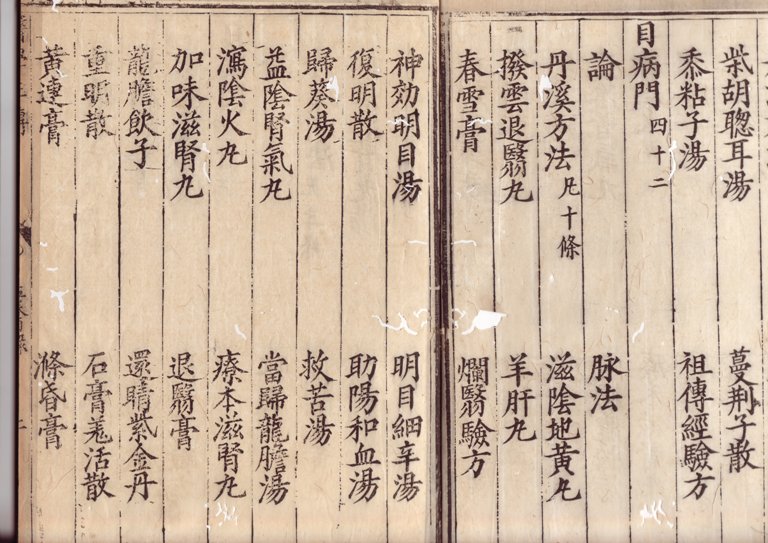 柴胡聦耳湯 蔓荊子散
黍粘子湯 祖傳經驗方
目病門 四十二
論 脉法
丹溪方法 凡十條 滋陰地黃丸
撥雲退翳丸 羊肝丸
春雪膏 爛翳驗方
神効明目湯 明目細辛湯
復明散 助陽和血湯
歸葵湯 救苦湯
益陰腎氣丸 當歸龍膽湯
瀉陰火丸 療本滋腎丸
加味滋腎丸 退翳膏
龍膽飲子 還睛紫金丹
重明散 石膏羗活散
黃連膏 滌昏膏